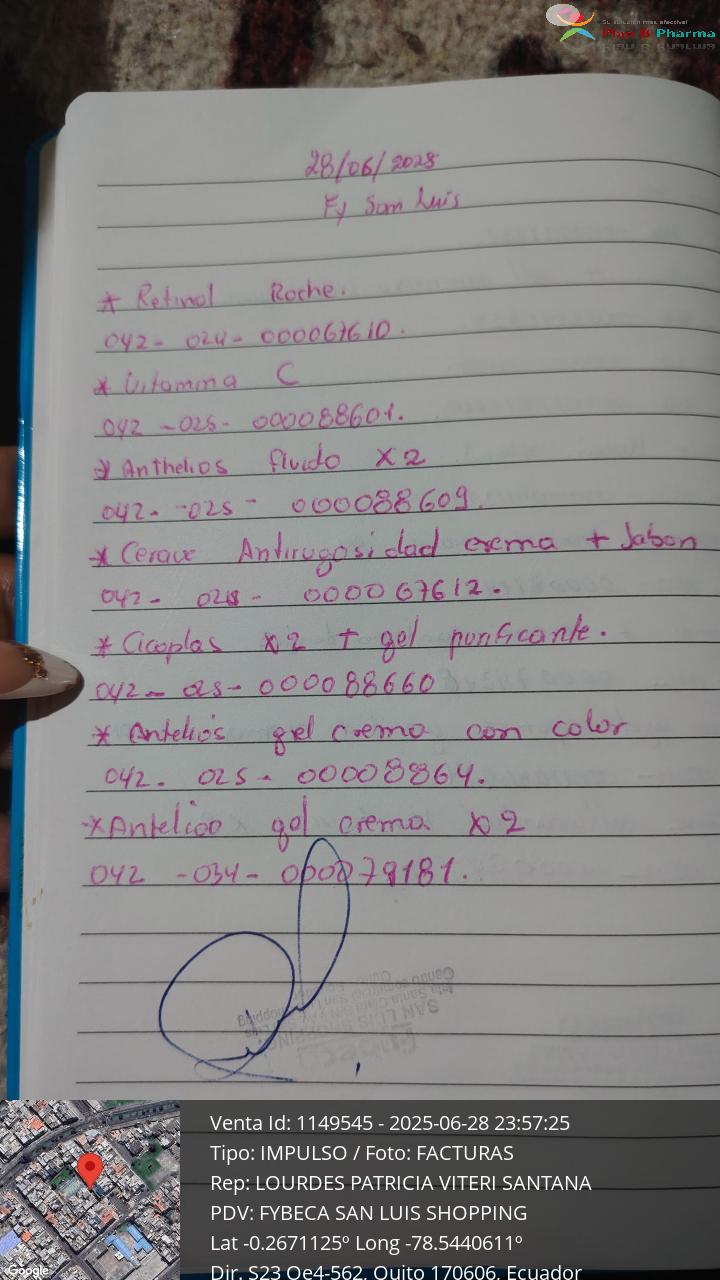 Su solución más efectiva!
Plan B Pharma
28/06/2025
Fy San Luis
* Retinol Roche.
042- 024- 000067610.
* Vitamina C
042 -025- 000088601.
* Anthelios fluido x2
042- -025 - 000088609.
* Cerave Antirugosidad crema + Jabon
042- 024- 000067612.
* Cicaplas x2 + gel purificante.
042- 025- 000088660
* Antelios gel crema con color
042- 025- 00008864.
* Antelios gel crema x2
042 -034- 000079181.
SAN LUIS SHOPPING
Venta Id: 1149545 - 2025-06-28 23:57:25
Tipo: IMPULSO / Foto: FACTURAS
Rep: LOURDES PATRICIA VITERI SANTANA
PDV: FYBECA SAN LUIS SHOPPING
Lat -0.2671125º Long -78.5440611º
Dir. S23 Oe4-562, Quito 170606, Ecuador
Google